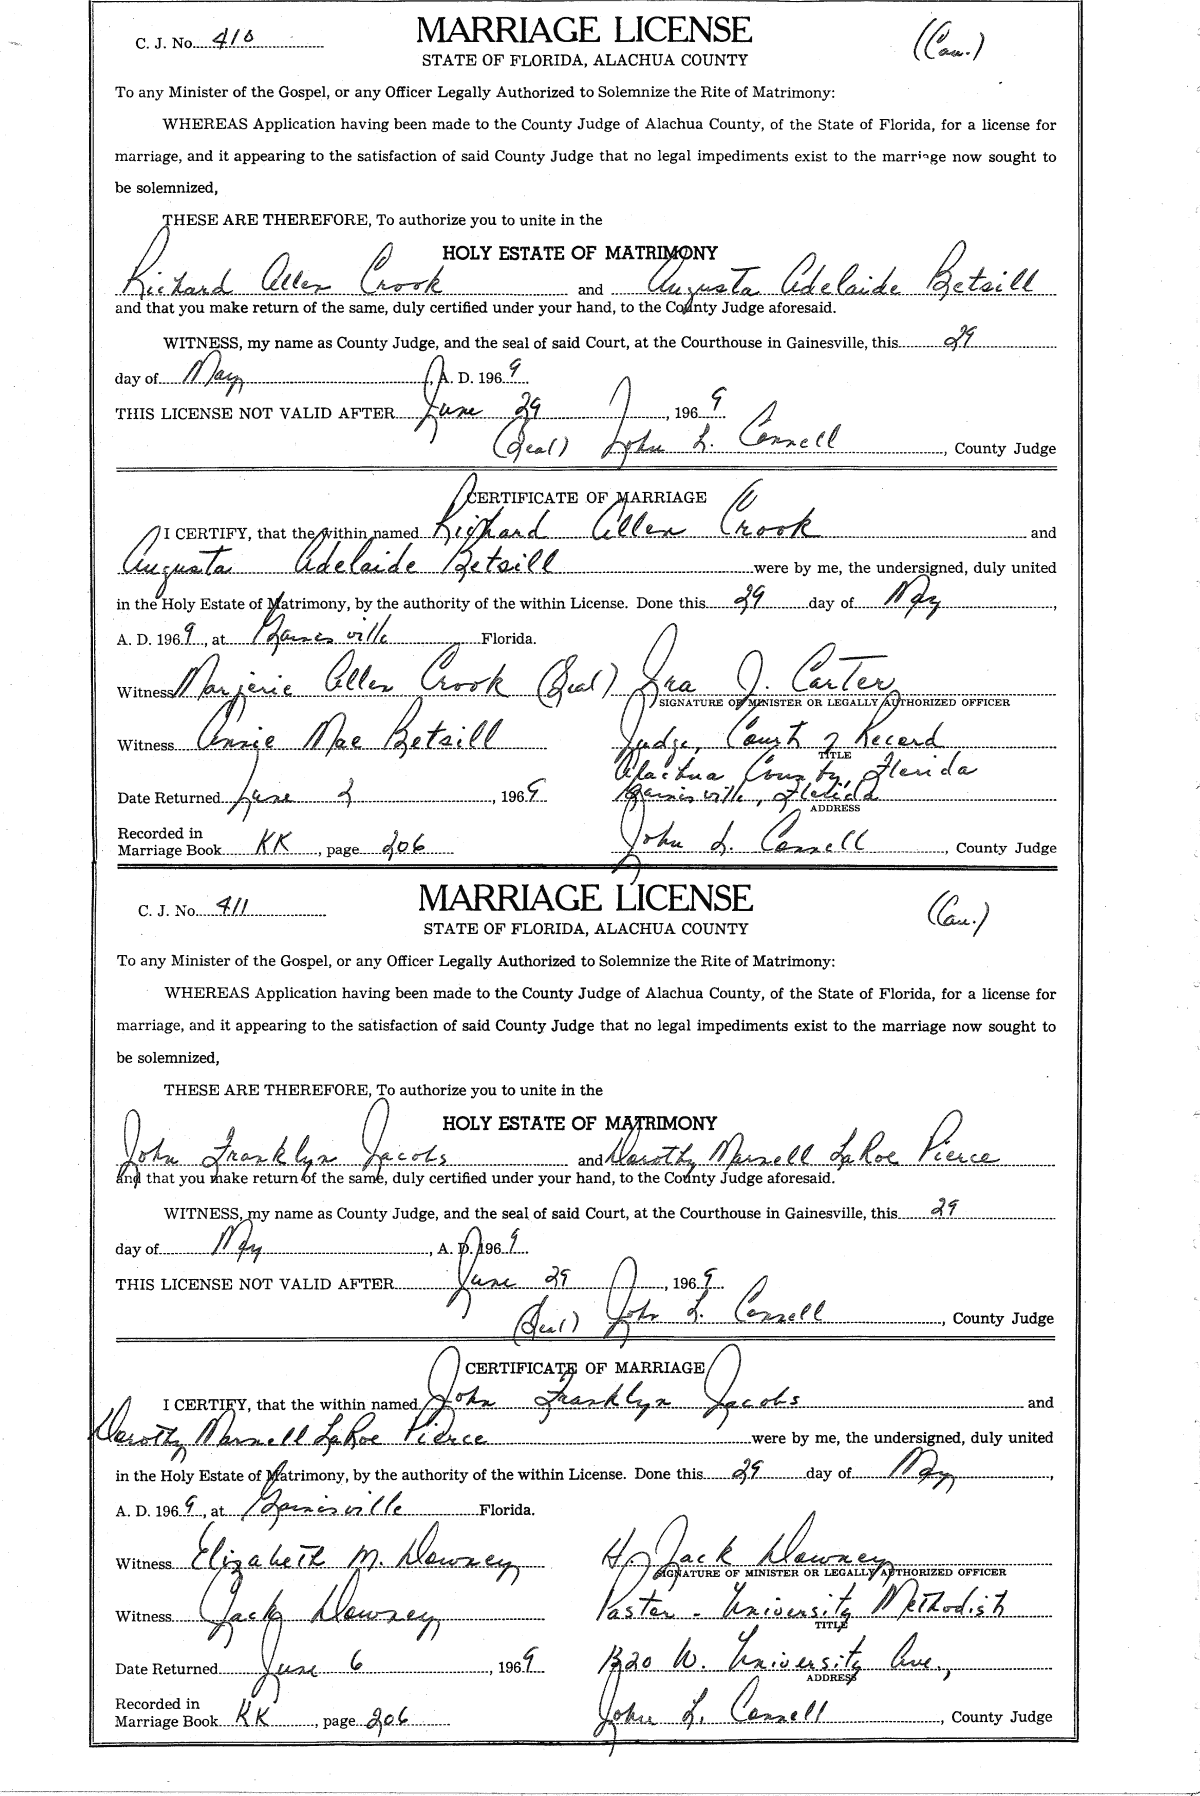 C. J. No. 410 MARRIAGE LICENSE (Cau.)
STATE OF FLORIDA, ALACHUA COUNTY
To any Minister of the Gospel, or any Officer Legally Authorized to Solemnize the Rite of Matrimony:
WHEREAS Application having been made to the County Judge of Alachua County, of the State of Florida, for a license for
marriage, and it appearing to the satisfaction of said County Judge that no legal impediments exist to the marriage now sought to
be solemnized,
THESE ARE THEREFORE, To authorize you to unite in the
HOLY ESTATE OF MATRIMONY
Richard Allen Crook and Augusta Adelaide Betsill
and that you make return of the same, duly certified under your hand, to the County Judge aforesaid.
WITNESS, my name as County Judge, and the seal of said Court, at the Courthouse in Gainesville, this 29
day of May, A. D. 1969
THIS LICENSE NOT VALID AFTER June 29, 1969
(Seal) John L. Connell, County Judge
CERTIFICATE OF MARRIAGE
I CERTIFY, that the within named Richard Allen Crook and
Augusta Adelaide Betsill were by me, the undersigned, duly united
in the Holy Estate of Matrimony, by the authority of the within License. Done this 29 day of May,
A. D. 1969, at Gainesville Florida.
Witness Marjorie Allen Crook (Seal) Ira J. Carter
SIGNATURE OF MINISTER OR LEGALLY AUTHORIZED OFFICER
Witness Annie Mae Betsill Judge, Court of Record
TITLE
Alachua County, Florida
Date Returned June 2, 1969 Gainesville, Florida
ADDRESS
Recorded in
Marriage Book KK, page 206 John L. Connell, County Judge
C. J. No. 411 MARRIAGE LICENSE (Cau.)
STATE OF FLORIDA, ALACHUA COUNTY
To any Minister of the Gospel, or any Officer Legally Authorized to Solemnize the Rite of Matrimony:
WHEREAS Application having been made to the County Judge of Alachua County, of the State of Florida, for a license for
marriage, and it appearing to the satisfaction of said County Judge that no legal impediments exist to the marriage now sought to
be solemnized,
THESE ARE THEREFORE, To authorize you to unite in the
HOLY ESTATE OF MATRIMONY
John Franklyn Jacobs and Dorothy Marnell LaRoe Pierce
and that you make return of the same, duly certified under your hand, to the County Judge aforesaid.
WITNESS, my name as County Judge, and the seal of said Court, at the Courthouse in Gainesville, this 29
day of May, A. D. 1969
THIS LICENSE NOT VALID AFTER June 29, 1969
(Seal) John L. Connell, County Judge
CERTIFICATE OF MARRIAGE
I CERTIFY, that the within named John Franklyn Jacobs and
Dorothy Marnell LaRoe Pierce were by me, the undersigned, duly united
in the Holy Estate of Matrimony, by the authority of the within License. Done this 29 day of May,
A. D. 1969, at Gainesville Florida.
Witness Elizabeth M. Downey H. Jack Downey
SIGNATURE OF MINISTER OR LEGALLY AUTHORIZED OFFICER
Witness Jack Downey Pastor - University Methodist
TITLE
Date Returned June 6, 1969 1320 W. University Ave.,
ADDRESS
Recorded in
Marriage Book KK, page 206 John L. Connell, County Judge